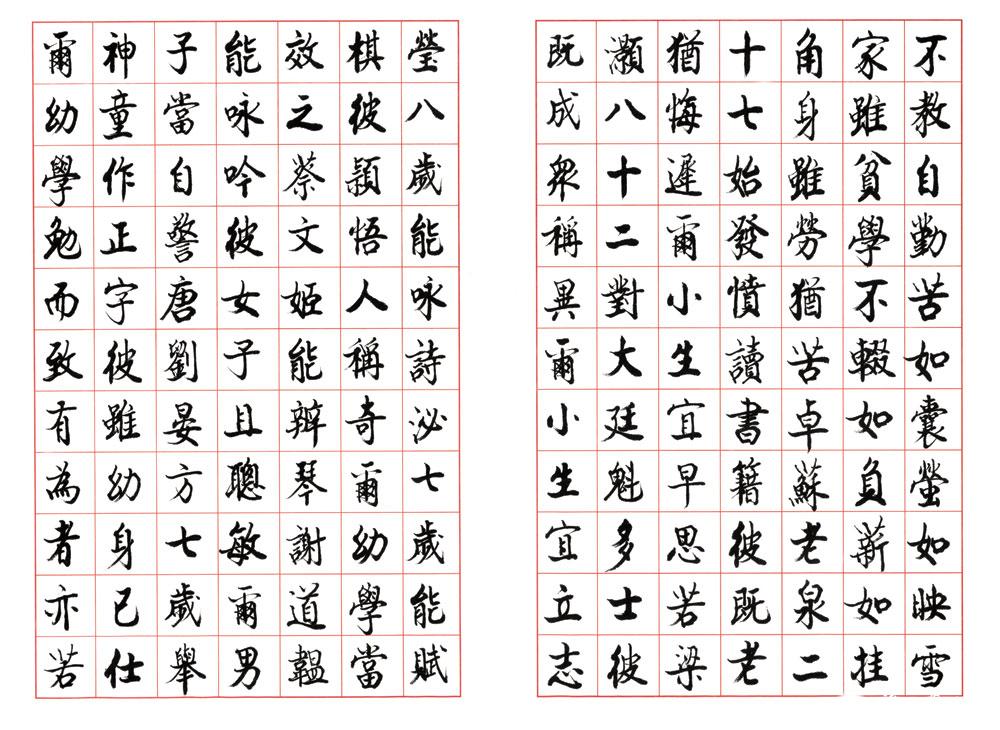 不教自勤苦如囊螢如映雪
家雖貧學不輟如負薪如挂
角身雖勞猶苦卓蘇老泉二
十七始發憤讀書籍彼既老
猶悔遲爾小生宜早思若梁
灝八十二對大廷魁多士彼
既成衆稱異爾小生宜立志
瑩八歲能咏詩泌七歲能賦
棋彼穎悟人稱奇爾幼學當
效之蔡文姬能辨琴謝道韞
能咏吟彼女子且聰敏爾男
子當自警唐劉晏方七歲舉
神童作正字彼雖幼身已仕
爾幼學勉而致有為者亦若